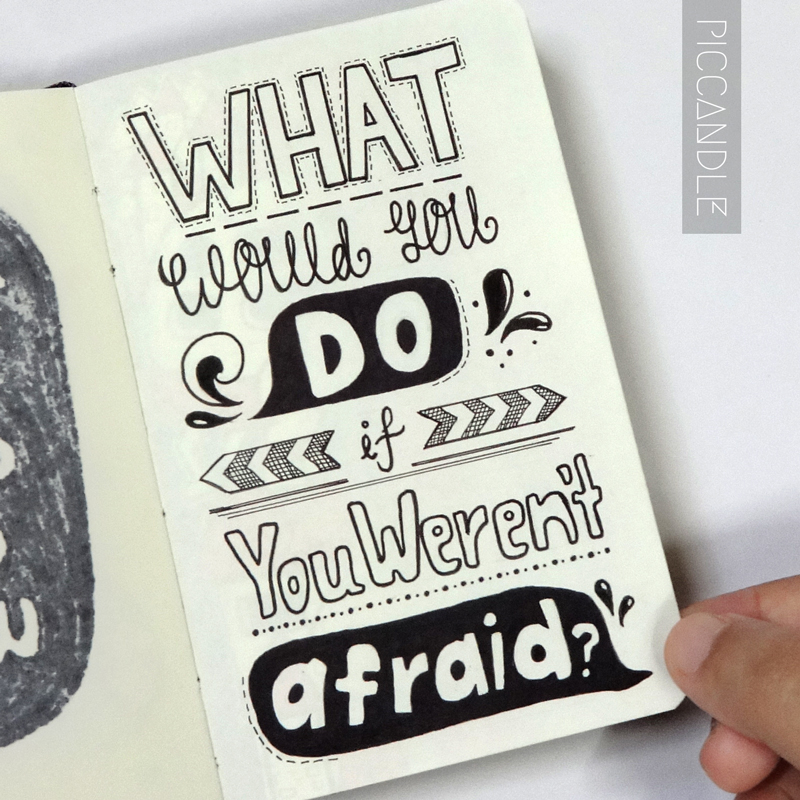 WHAT
would you
DO
if
You Weren't
afraid?
PICCANDLE